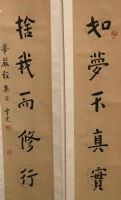 如夢不真實
捨我而修行
華嚴經集句